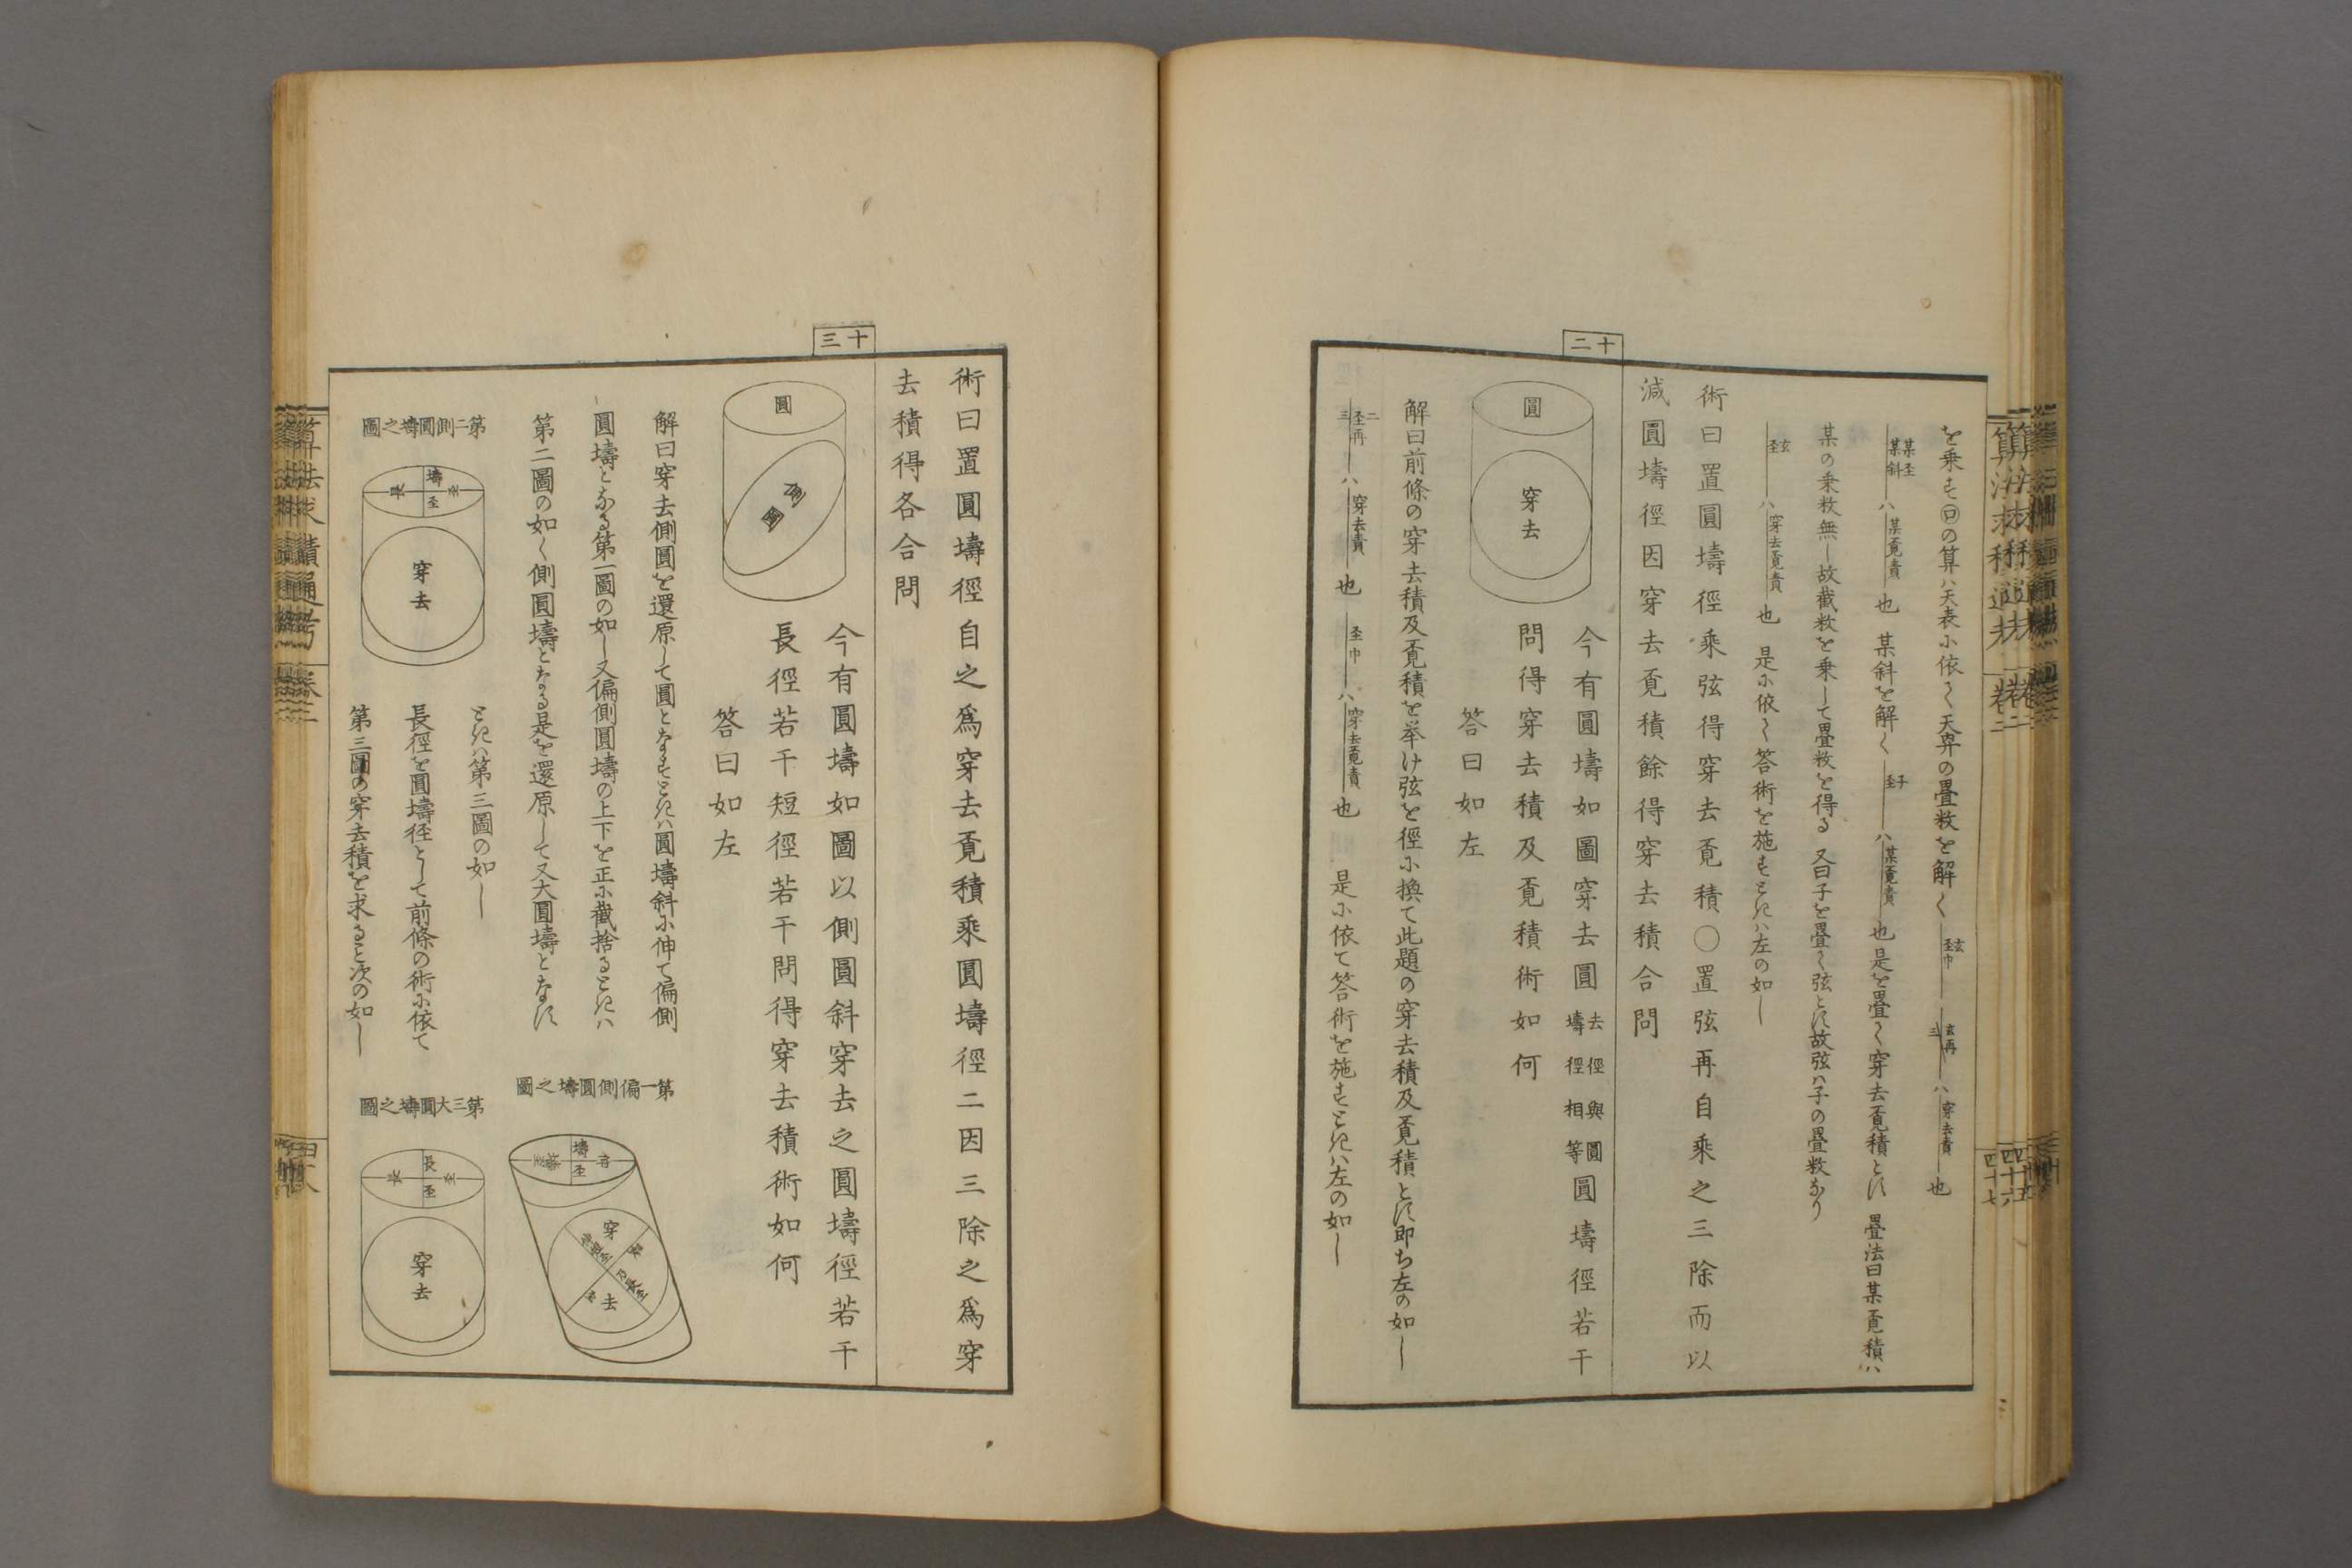 を乗す㋺の算ハ天表に依く天𢆯の畳数を解く 玄圣巾 三玄再 ハ穿去責也
某圣某斜 ハ某覔責也 某斜を解く 子圣 ハ某覔責也 是を畳く穿去覔積とす 畳法曰某覔積ハ
某の乗数無し故截数を乗して畳数を得る 又曰子を畳く弦とす故弦ハ子の畳数なり
玄圣 ハ穿去覔責也 是に依く答術を施すときハ左の如し
術曰置圓壔徑乘弦得穿去覔積〇置弦再自乘之三除而以
減圓壔徑因穿去覔積餘得穿去積合問
十二
圓
穿去
今有圓壔如圖穿去圓去徑與圓壔徑相等圓壔徑若干
問得穿去積及覔積術如何
答曰如左
解曰前條の穿去積及覔積を挙け弦を徑に換て此題の穿去積及覔積とす即ち左の如し
二圣再三 ハ穿去責也 圣巾 ハ穿去覔責也 是に依て答術を施すときハ左の如し
術曰置圓壔徑自之爲穿去覔積乘圓壔徑二因三除之爲穿
去積得各合問
十三
圓
今有圓壔如圖以側圓斜穿去之圓壔徑若干
長徑若干短徑若干問得穿去積術如何
答曰如左
解曰穿去側圓を還原して圓となすときハ圓壔斜に伸て偏側
圓壔となる第一圖の如し又偏側圓壔の上下を正に截捨るときハ
第二圖の如く側圓壔となる是を還原して又大圓壔となす
ときハ第三圖の如し
長徑を圓壔径として前條の術に依て
第三圖の穿去積を求ると次の如し
第一偏側圓壔之圖
壔圣
穿去
第二側圓壔之圖
壔圣
長圣
穿去
第三大圓壔之圖
長圣
長圣
穿去
算法求積通考
卷二
四十七